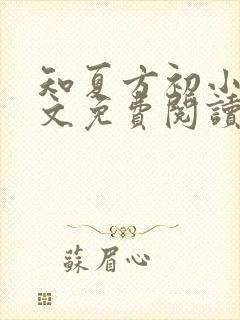 知夏方初小
文免費閱讀
蘇眉心